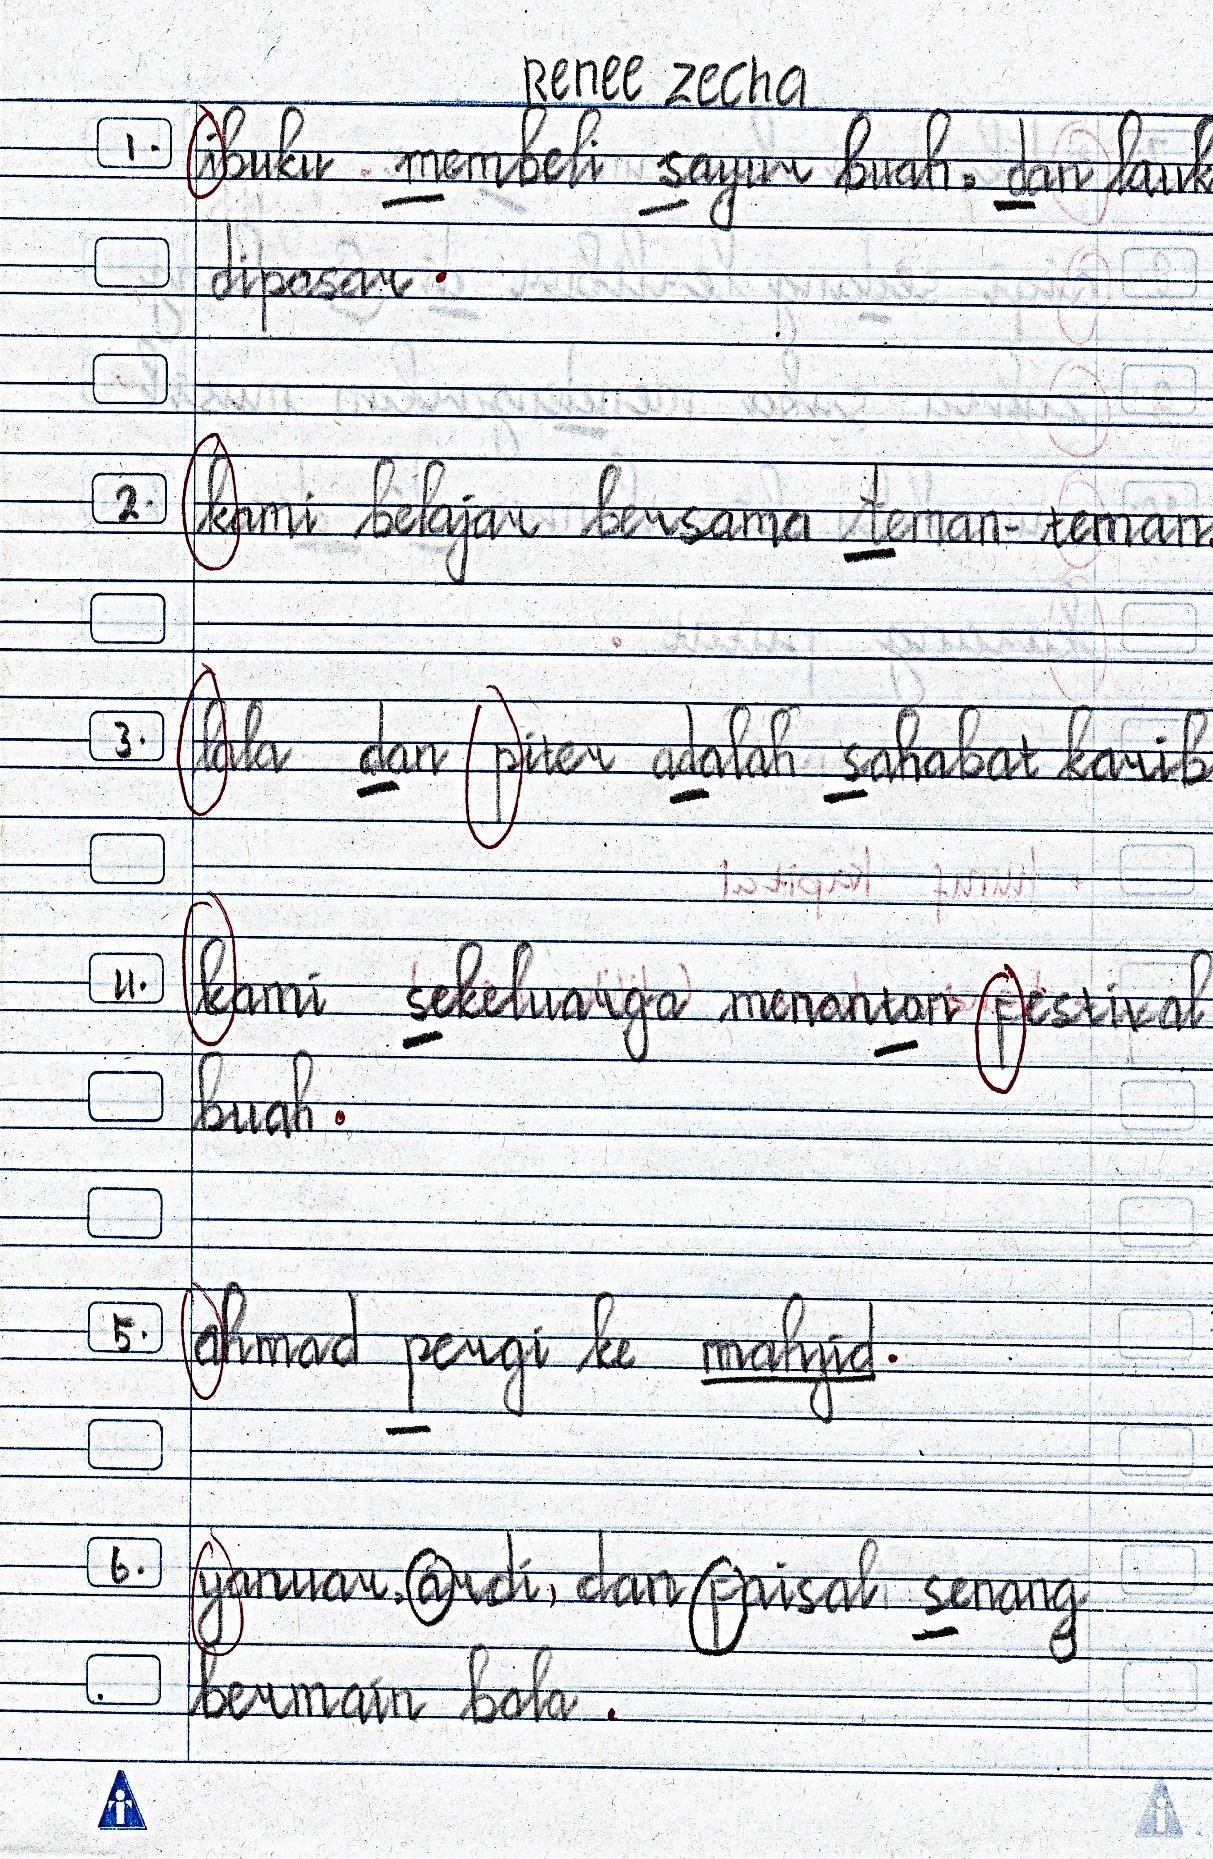 Renee zecha
1. ibuku membeli sayur buah, dan lauk
dipasar.
2. kami belajar bersama teman-teman.
3. lala dan piter adalah sahabat karib
4. kami sekeluarga menonton festival
buah.
5. ahmad pergi ke mahjid.
6. yanuar, ardi, dan faisal senang
bermain bola.